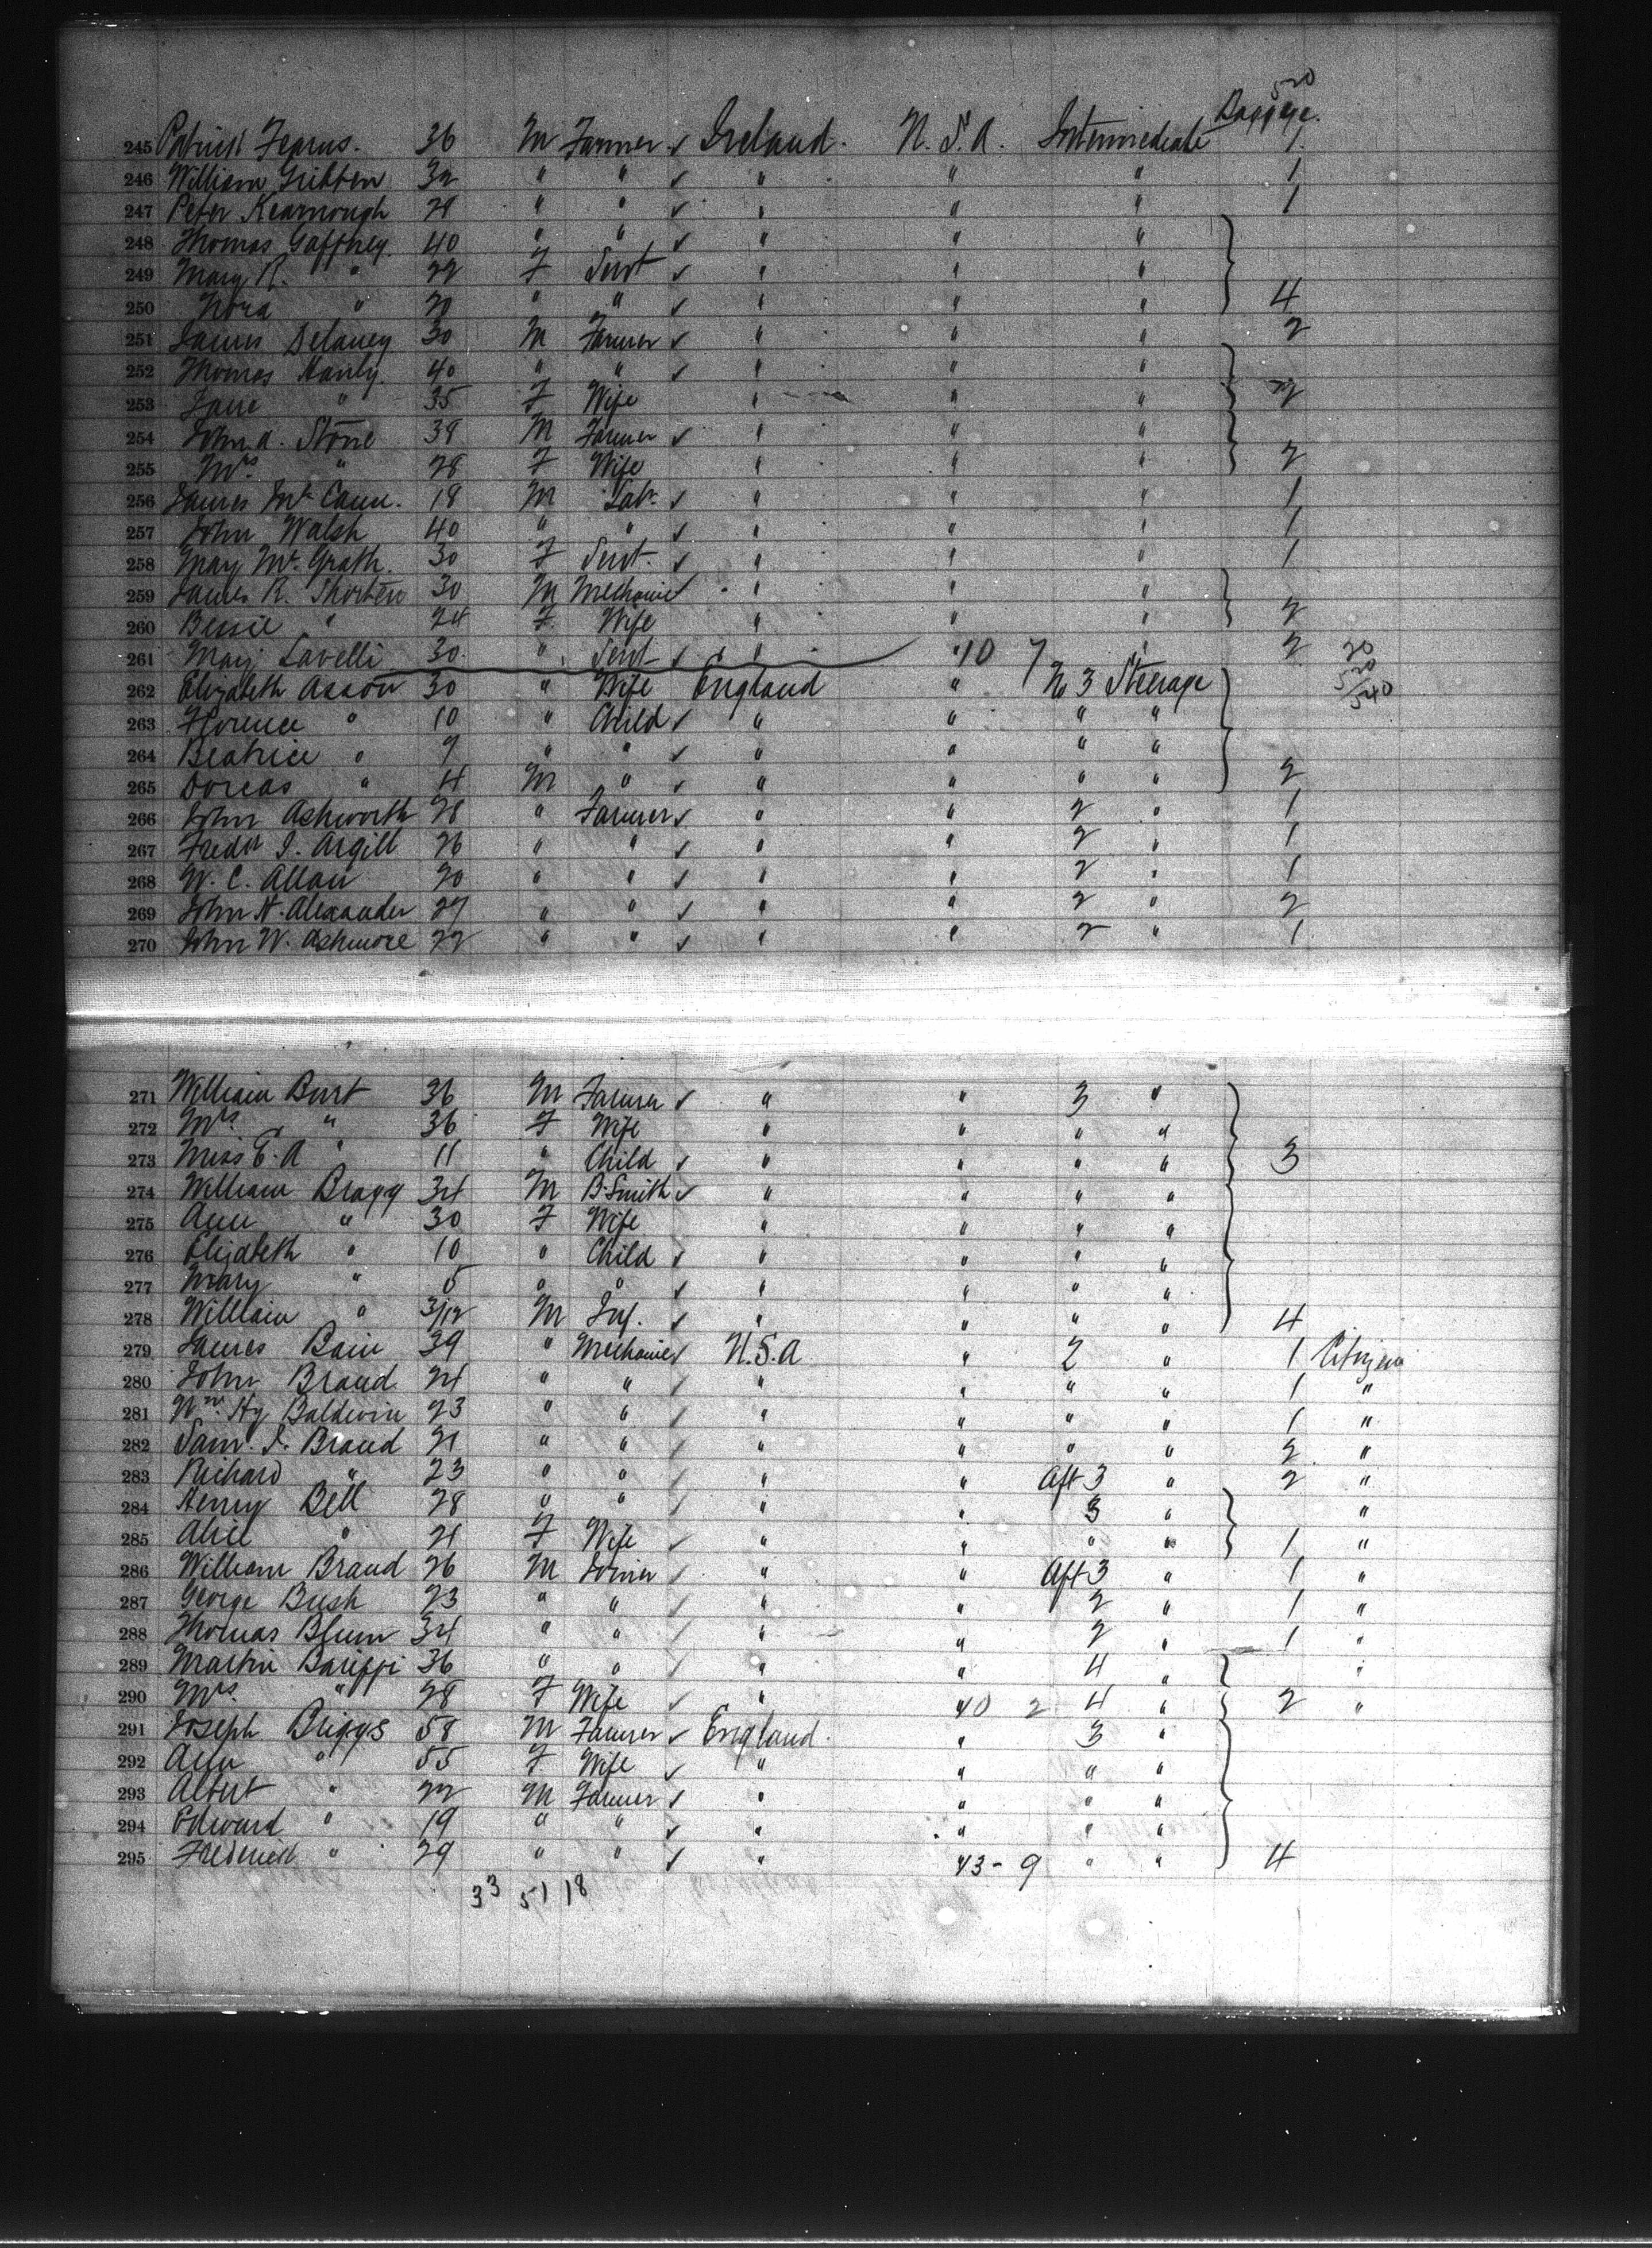 520
Baggage.
245 Patrick Fearns. 36 M Farmer ✓ Ireland. U.S.A. Intermediate 1.
246 William Gribben 32 " " ✓ " " " 1
247 Peter 28 " " ✓ " " " 1
248 Thomas Gaffney. 40 " " ✓ " " "
249 Mary R. " 22 F Servt ✓ " " "
250 Nora " 20 " " ✓ " " " 4
251 James Delaney 30 M Farmer ✓ " " " 2
252 Thomas Hanly. 40 " " ✓ " " "
253 Jane " 35 F Wife " " " 2
254 John A. Stone 38 M Farmer ✓ " " "
255 Mrs " 28 F Wife " " " 2
256 James McCann. 18 M Labr. ✓ " " " 1
257 John Walsh 40 " " ✓ " " " 1
258 Mary McGrath. 30 F Servt. ✓ " " " 1
259 James R. Shorten 30 M Mechanic ✓ " " "
260 Bessie " 24 F. Wife " " " 2
261 Mary Lavelli 30. " Servt ✓ " " 10 7 " 2 20
262 Elizabeth 30 " Wife England " No 3 Steerage 520
540
263 Florence " 10 " Child ✓ " " " "
264 Beatrice " 9 " " ✓ " " " "
265 Dorcas " 4 M " ✓ " " " " 2
266 John Ashworth 28 " Farmer ✓ " " 2 " 1
267 Fredk J. Argill 26 " " ✓ " " 2 " 1
268 W. C. Allan 20 " " ✓ " " 2 " 1
269 John H. Alexander 27 " " ✓ " " 2 " 2
270 John W. Ashmore 22 " " ✓ " " 2 " 1
271 William Burt 36 M Farmer ✓ " " 3 "
272 Mrs " 36 F Wife " " " "
273 Miss E. A " 11 " Child ✓ " " " " 3
274 William Bragg 34 M B. Smith ✓ " " " "
275 Ann " 30 F Wife " " " "
276 Elizabeth " 10 " Child ✓ " " " "
277 Mary " 5 " " ✓ " " " "
278 William " 3/12 M Inf. ✓ " " " " 4
279 James Bain 39 " Mechanic ✓ U.S.A " 2 " 1 Citizen
280 John Braud 24 " " ✓ " " " " 1 "
281 Wm Hy Baldwin 23 " " ✓ " " " " 1 "
282 Sam. J. Braud 21 " " ✓ " " " " 2 "
283 Richard " 23 " " " " Aft 3 " 2 "
284 Henry Bell 28 " " ✓ " " 3 " "
285 Alice " 21 F Wife ✓ " " " " 1 "
286 William Braud 26 M Joiner ✓ " " Aft 3 " 1 "
287 George Bush 23 " " ✓ " " 2 " 1 "
288 Thomas Blum 34 " " ✓ " " 2 " 1 "
289 Martin 36 " " ✓ " " 4 " "
290 Mrs. " 28 F Wife ✓ " 40 2 4 " 2 "
291 Joseph Briggs 58 M Farmer ✓ England. " 3 "
292 Ann " 55 F Wife ✓ " " " "
293 Albert " 22 M Farmer ✓ " " " "
294 Edward " 19 " " ✓ " " " "
295 Frederick " 29 " " ✓ " 43 - 9 " " 4
33 51 18